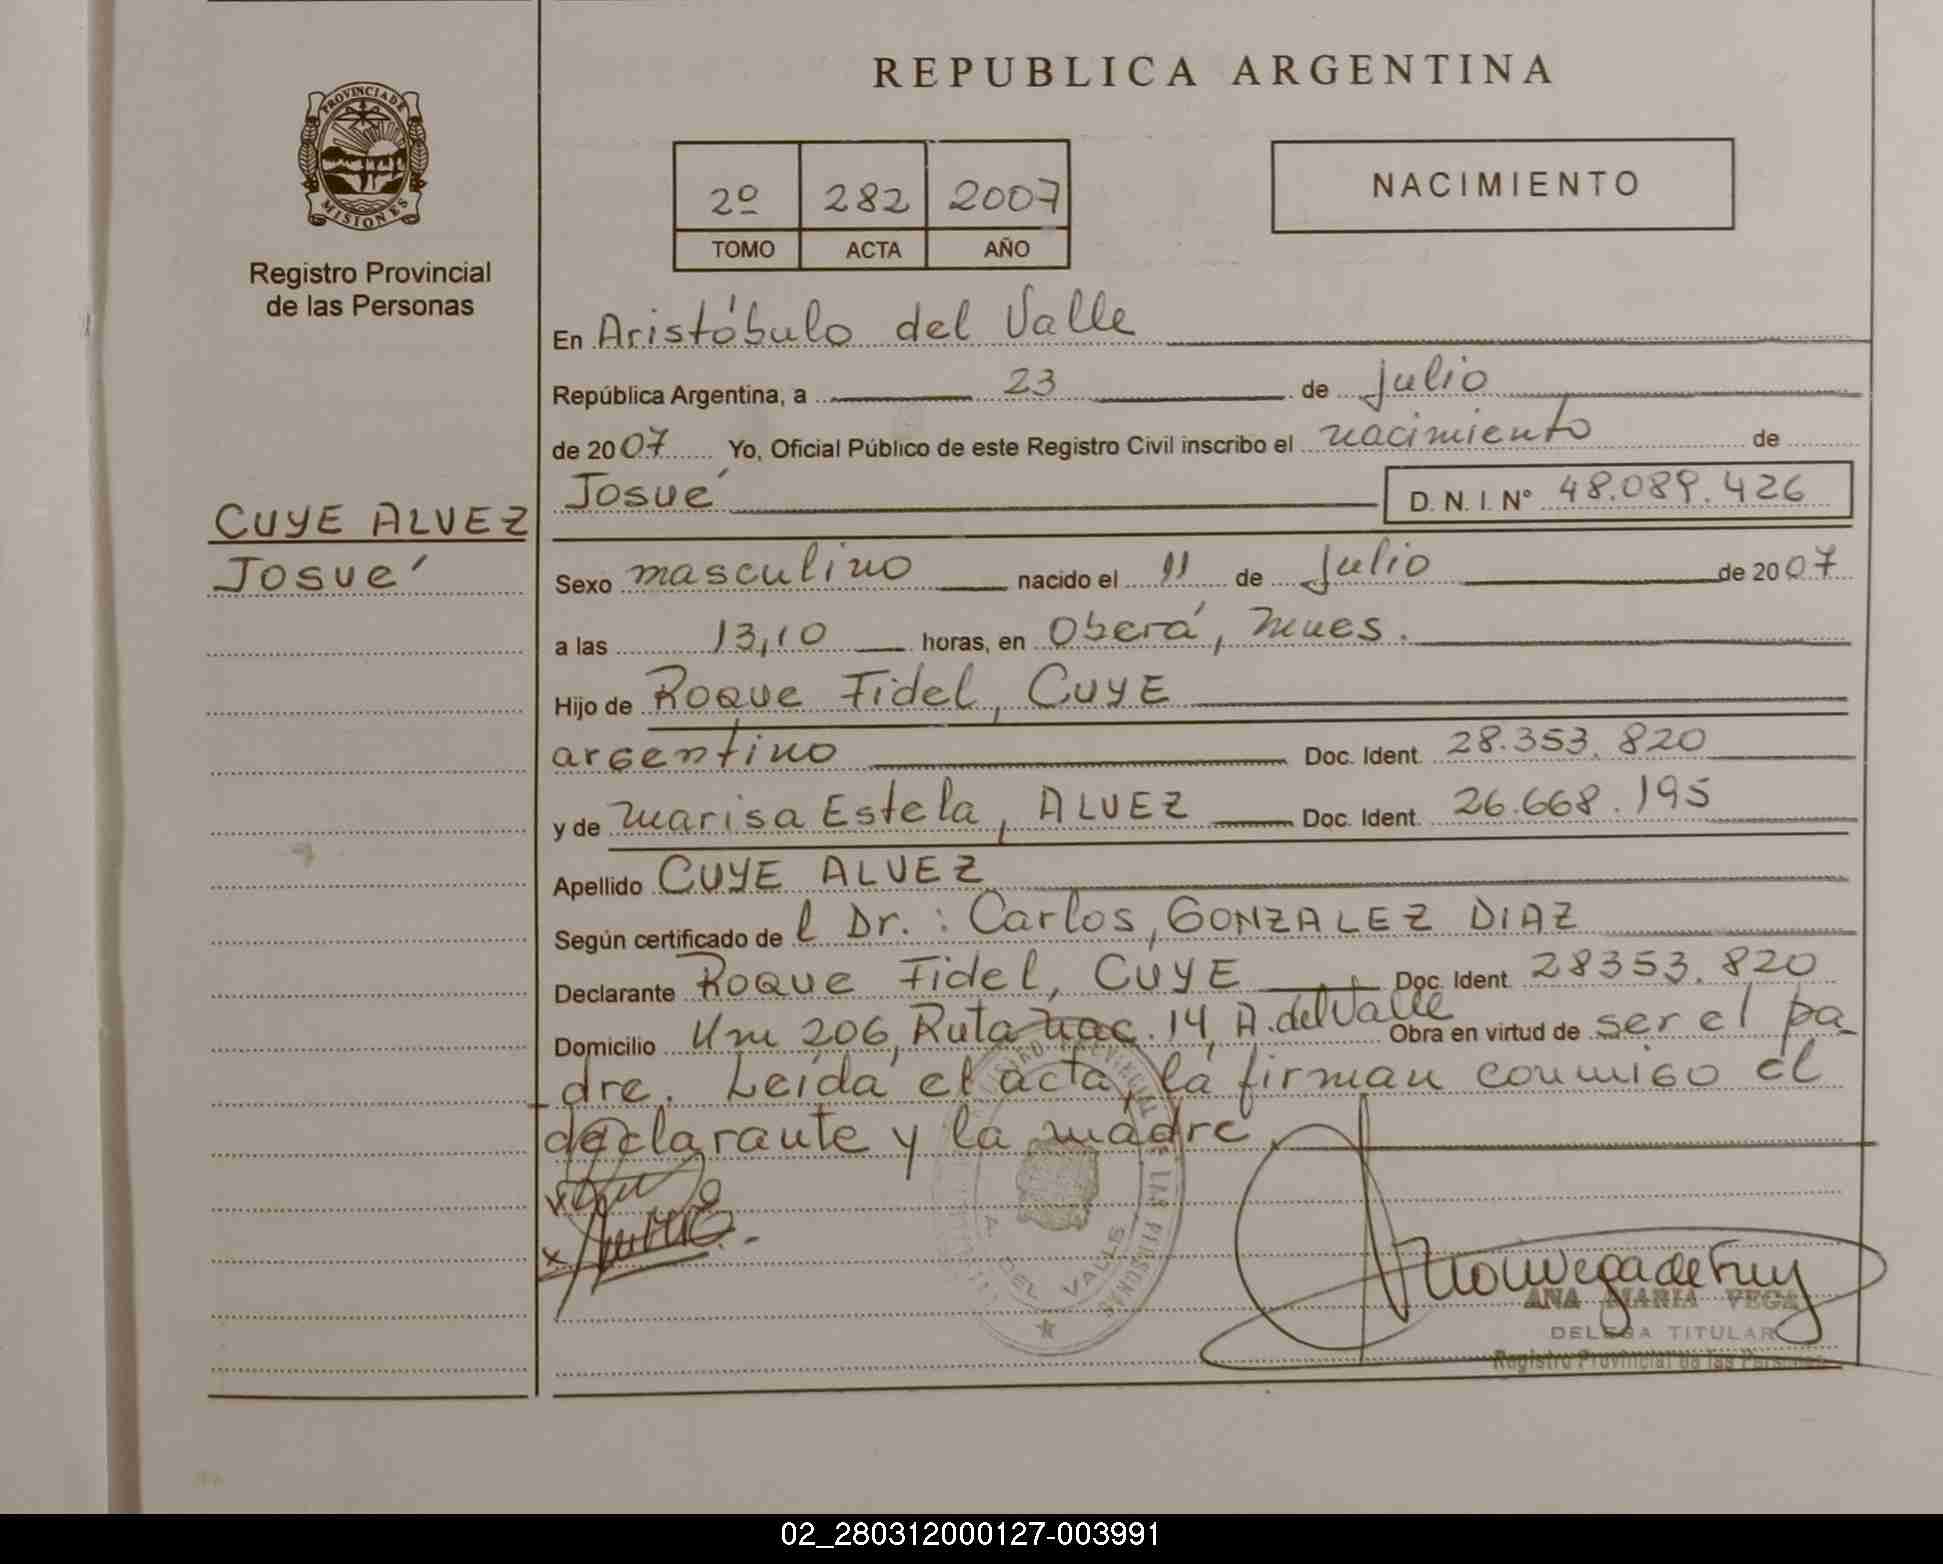 REPUBLICA ARGENTINA
PROVINCIA DE
MISIONES
Registro Provincial
de las Personas
2º 282 2007
TOMO ACTA AÑO
NACIMIENTO
En Aristóbulo del Valle
República Argentina, a 23 de Julio
de 2007 Yo, Oficial Público de este Registro Civil inscribo el nacimiento de
CUYE ALVEZ
Josué
Josué D. N. I. Nº 48.089.426
Sexo masculino nacido el 11 de Julio de 2007
a las 13,10 horas, en Oberá, Mnes.
Hijo de Roque Fidel, CUYE
argentino Doc. Ident. 28.353.820
y de Marisa Estela, ALVEZ Doc. Ident. 26.668.195
Apellido CUYE ALVEZ
Según certificado de l Dr.: Carlos, GONZALEZ DIAZ
Declarante Roque Fidel, CUYE Doc. Ident. 28353.820
Domicilio Km 206, Ruta Nac. 14, A. del Valle Obra en virtud de ser el pa
dre. Leída el acta, la firman conmigo el
declarante y la madre
A. DEL VALLE
ANA MARIA VEGA
DELEGA TITULAR
Registro Provincial de las Personas
02_280312000127-003991